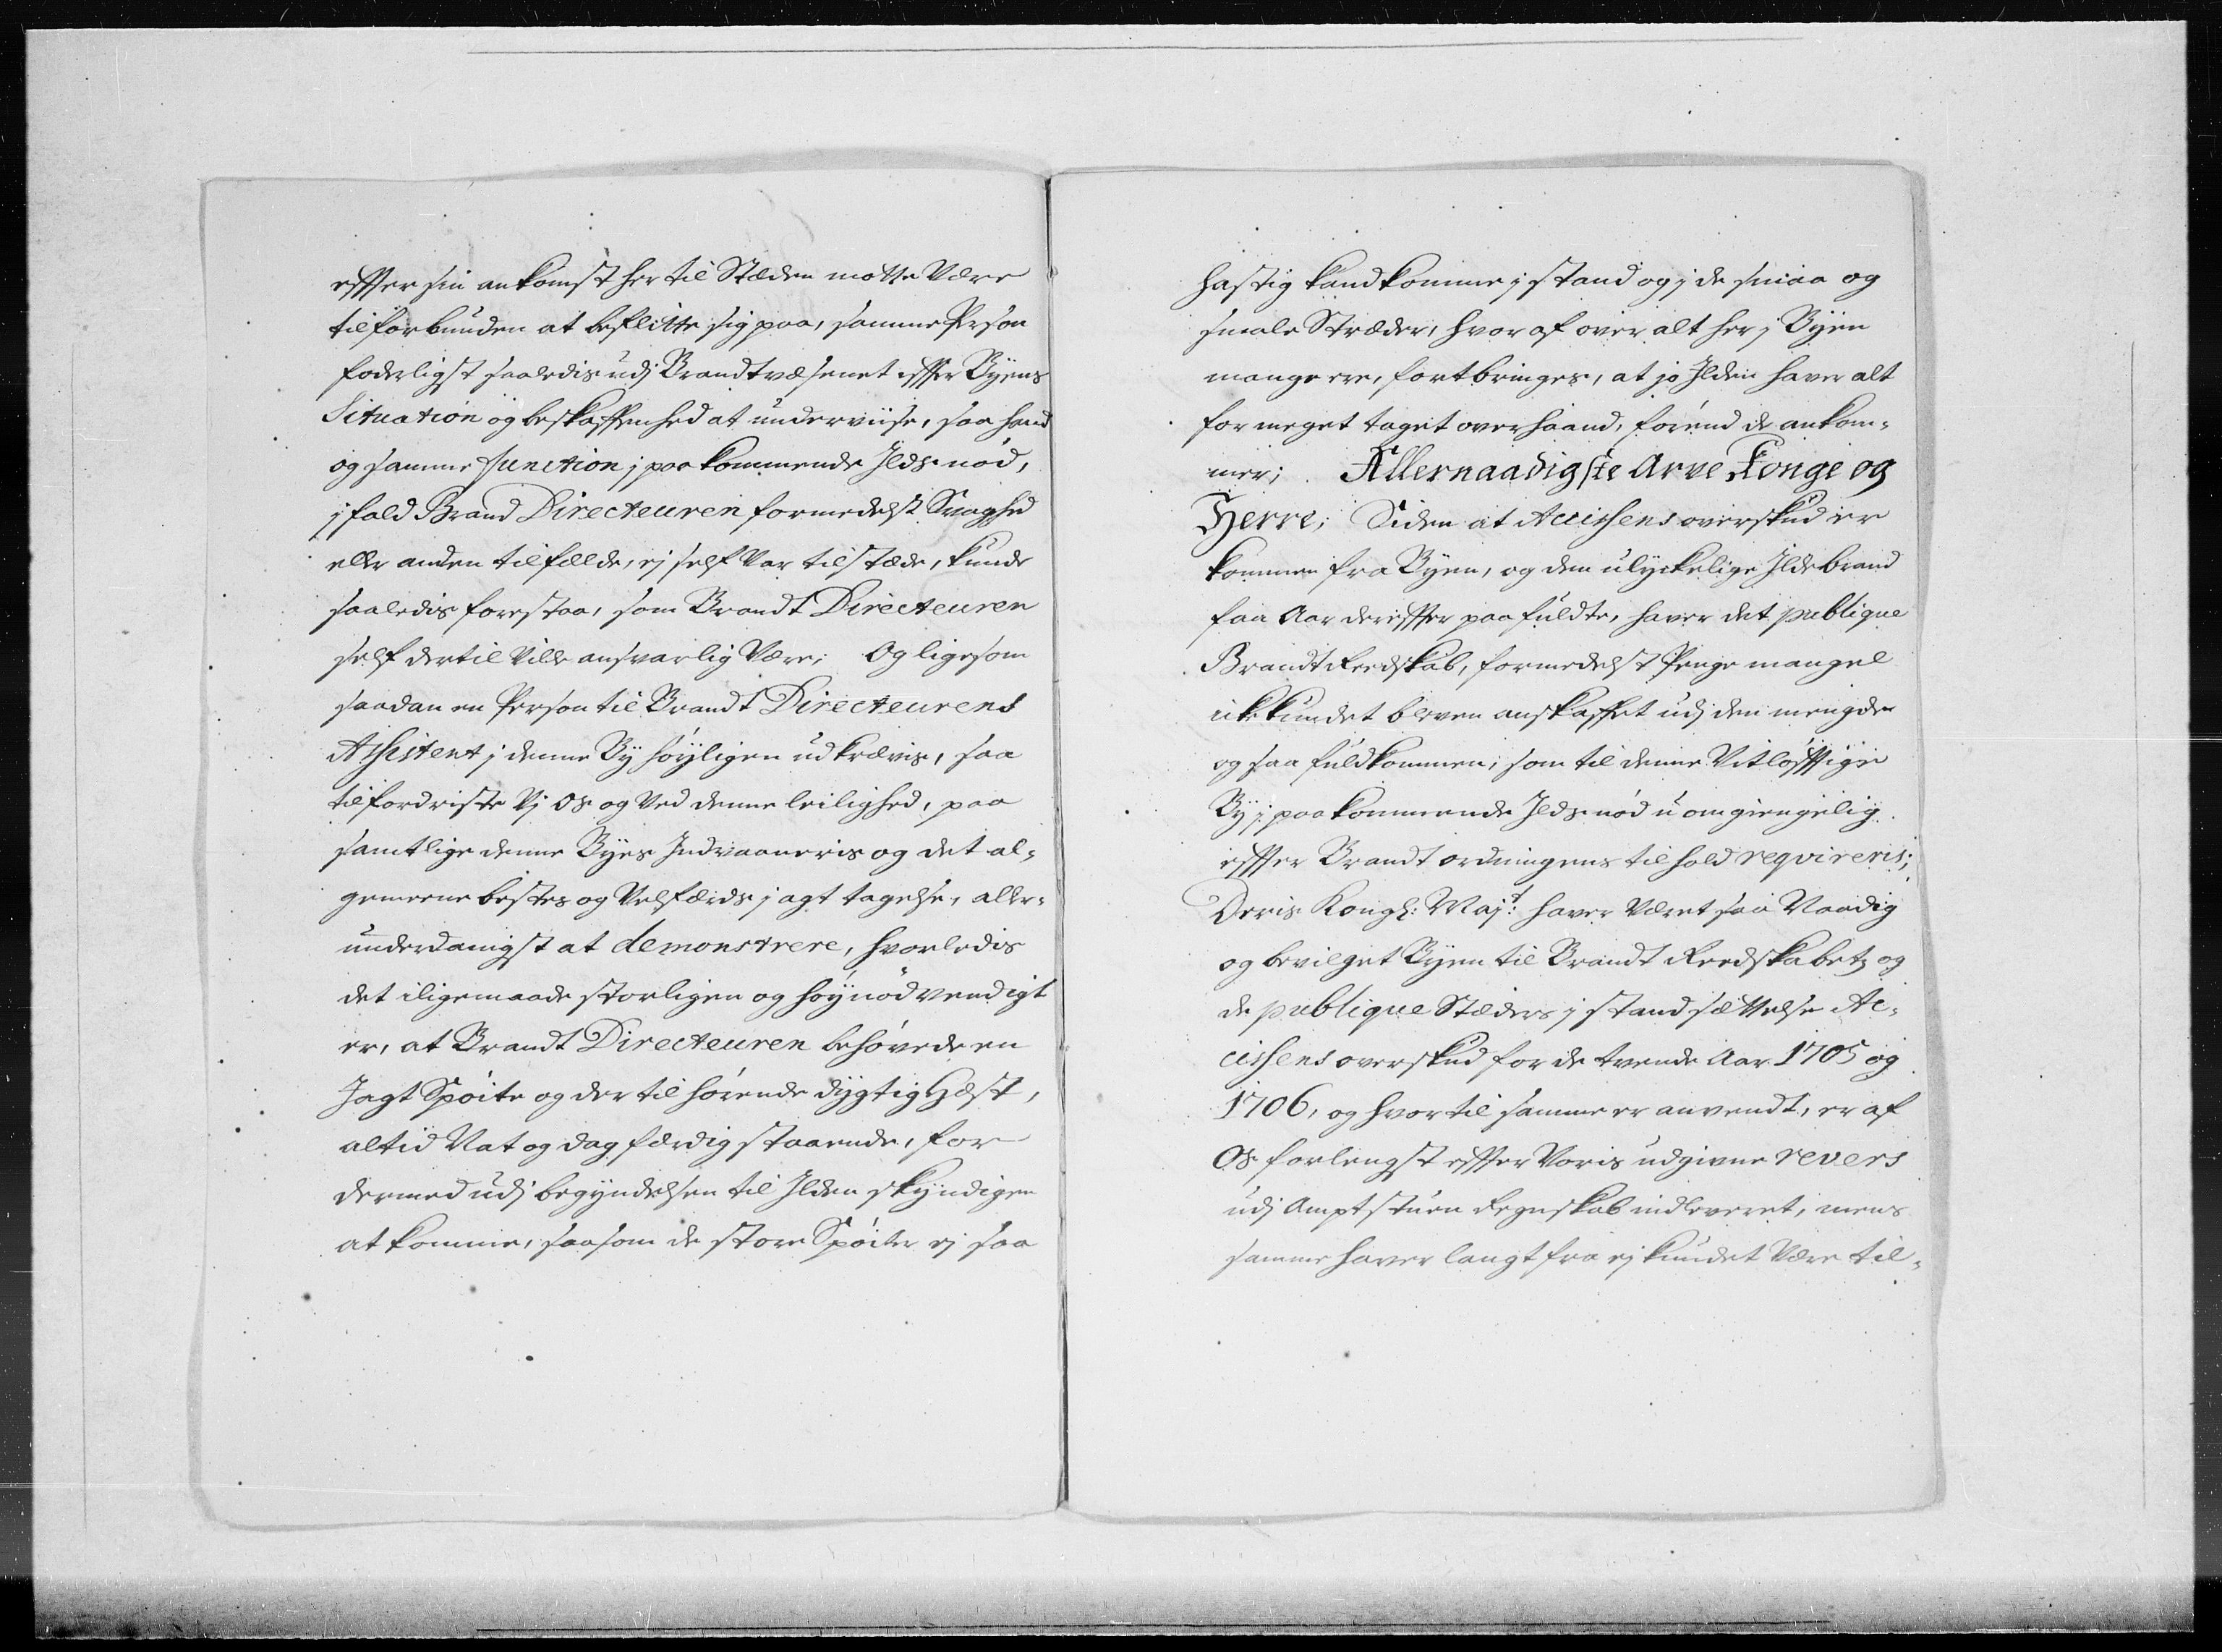 effter sin ankomst her til Stæden motte Være
tilforbunden at beflitte sig paa, samme Person
foderligst saaledis udj Brandtvæsenet effter Byens
Situation og beskaffenhed at underviise, saa hand
og samme function j paakommende Jlds nød,
j fald Brand Directeuren formedelst Svaghed
eller anden tilfælde, ej self Var tilstæde, kunde
saaledis forestaa, som Brandt Directeuren
self dertil Ville ansvarlig Være; Og ligesom
saadan en Person til Brandt Directeurens
Assistent j denne By høyligen udkrævis, saa
tilfordriste Vj Os og Ved denne leilighed, paa
samtlige denne Byes Indvaaneris og det al-
gemeene bestes og Velfærds j agt tagelse, aller-
underdanigst at demonstrere, hvorledis
det iligemaade storligen og høynødvendigt
er, at Brandt Directeuren behøvede en
Jagt Spøite og der til hørende dygtig Hæst,
altid Nat og dag færdig staaende, for
dermed udj begyndelsen til Jlden skyndigen
at komme, saasom de store Spøiter ej saa
hastig kand komme j stand og j de smaa og
smale Stræder, hvor af over alt her j Byen
mange ere, fortbringes, at jo Jlden haver alt
for meget taget overhaand, førend de ankom-
mer; Allernaadigste Arve Konge og
Herre; Siden at Accissens overskud er
kommen fra Byen, og den ulyckelige Jldebrand
faa Aar dereffter paafuldte, haver det publique
Brandt Reedskab, formedelst Penge mangel
ikke kundet bleven anskaffet udj den mengde
og saa fuldkommen, som til denne Vitløfftige
By j paakommende Jlds nød uomgiengelig
effter Brandt ordningens tilhold requireris;
Deris Kongl: Majt: haver Været saa Naadig
og bevilget Byen til Brandt Reedskabetz og
de publique Stæders j stand sættelse Ac-
cissens overskud for de tvende Aar 1705 og
1706, og hvortil samme er anvendt, er af
Os forlengst effter Voris udgivne revers
udj Amptstuen Regnskab indleveret, mens
samme haver langt fra ej kundet Være til-